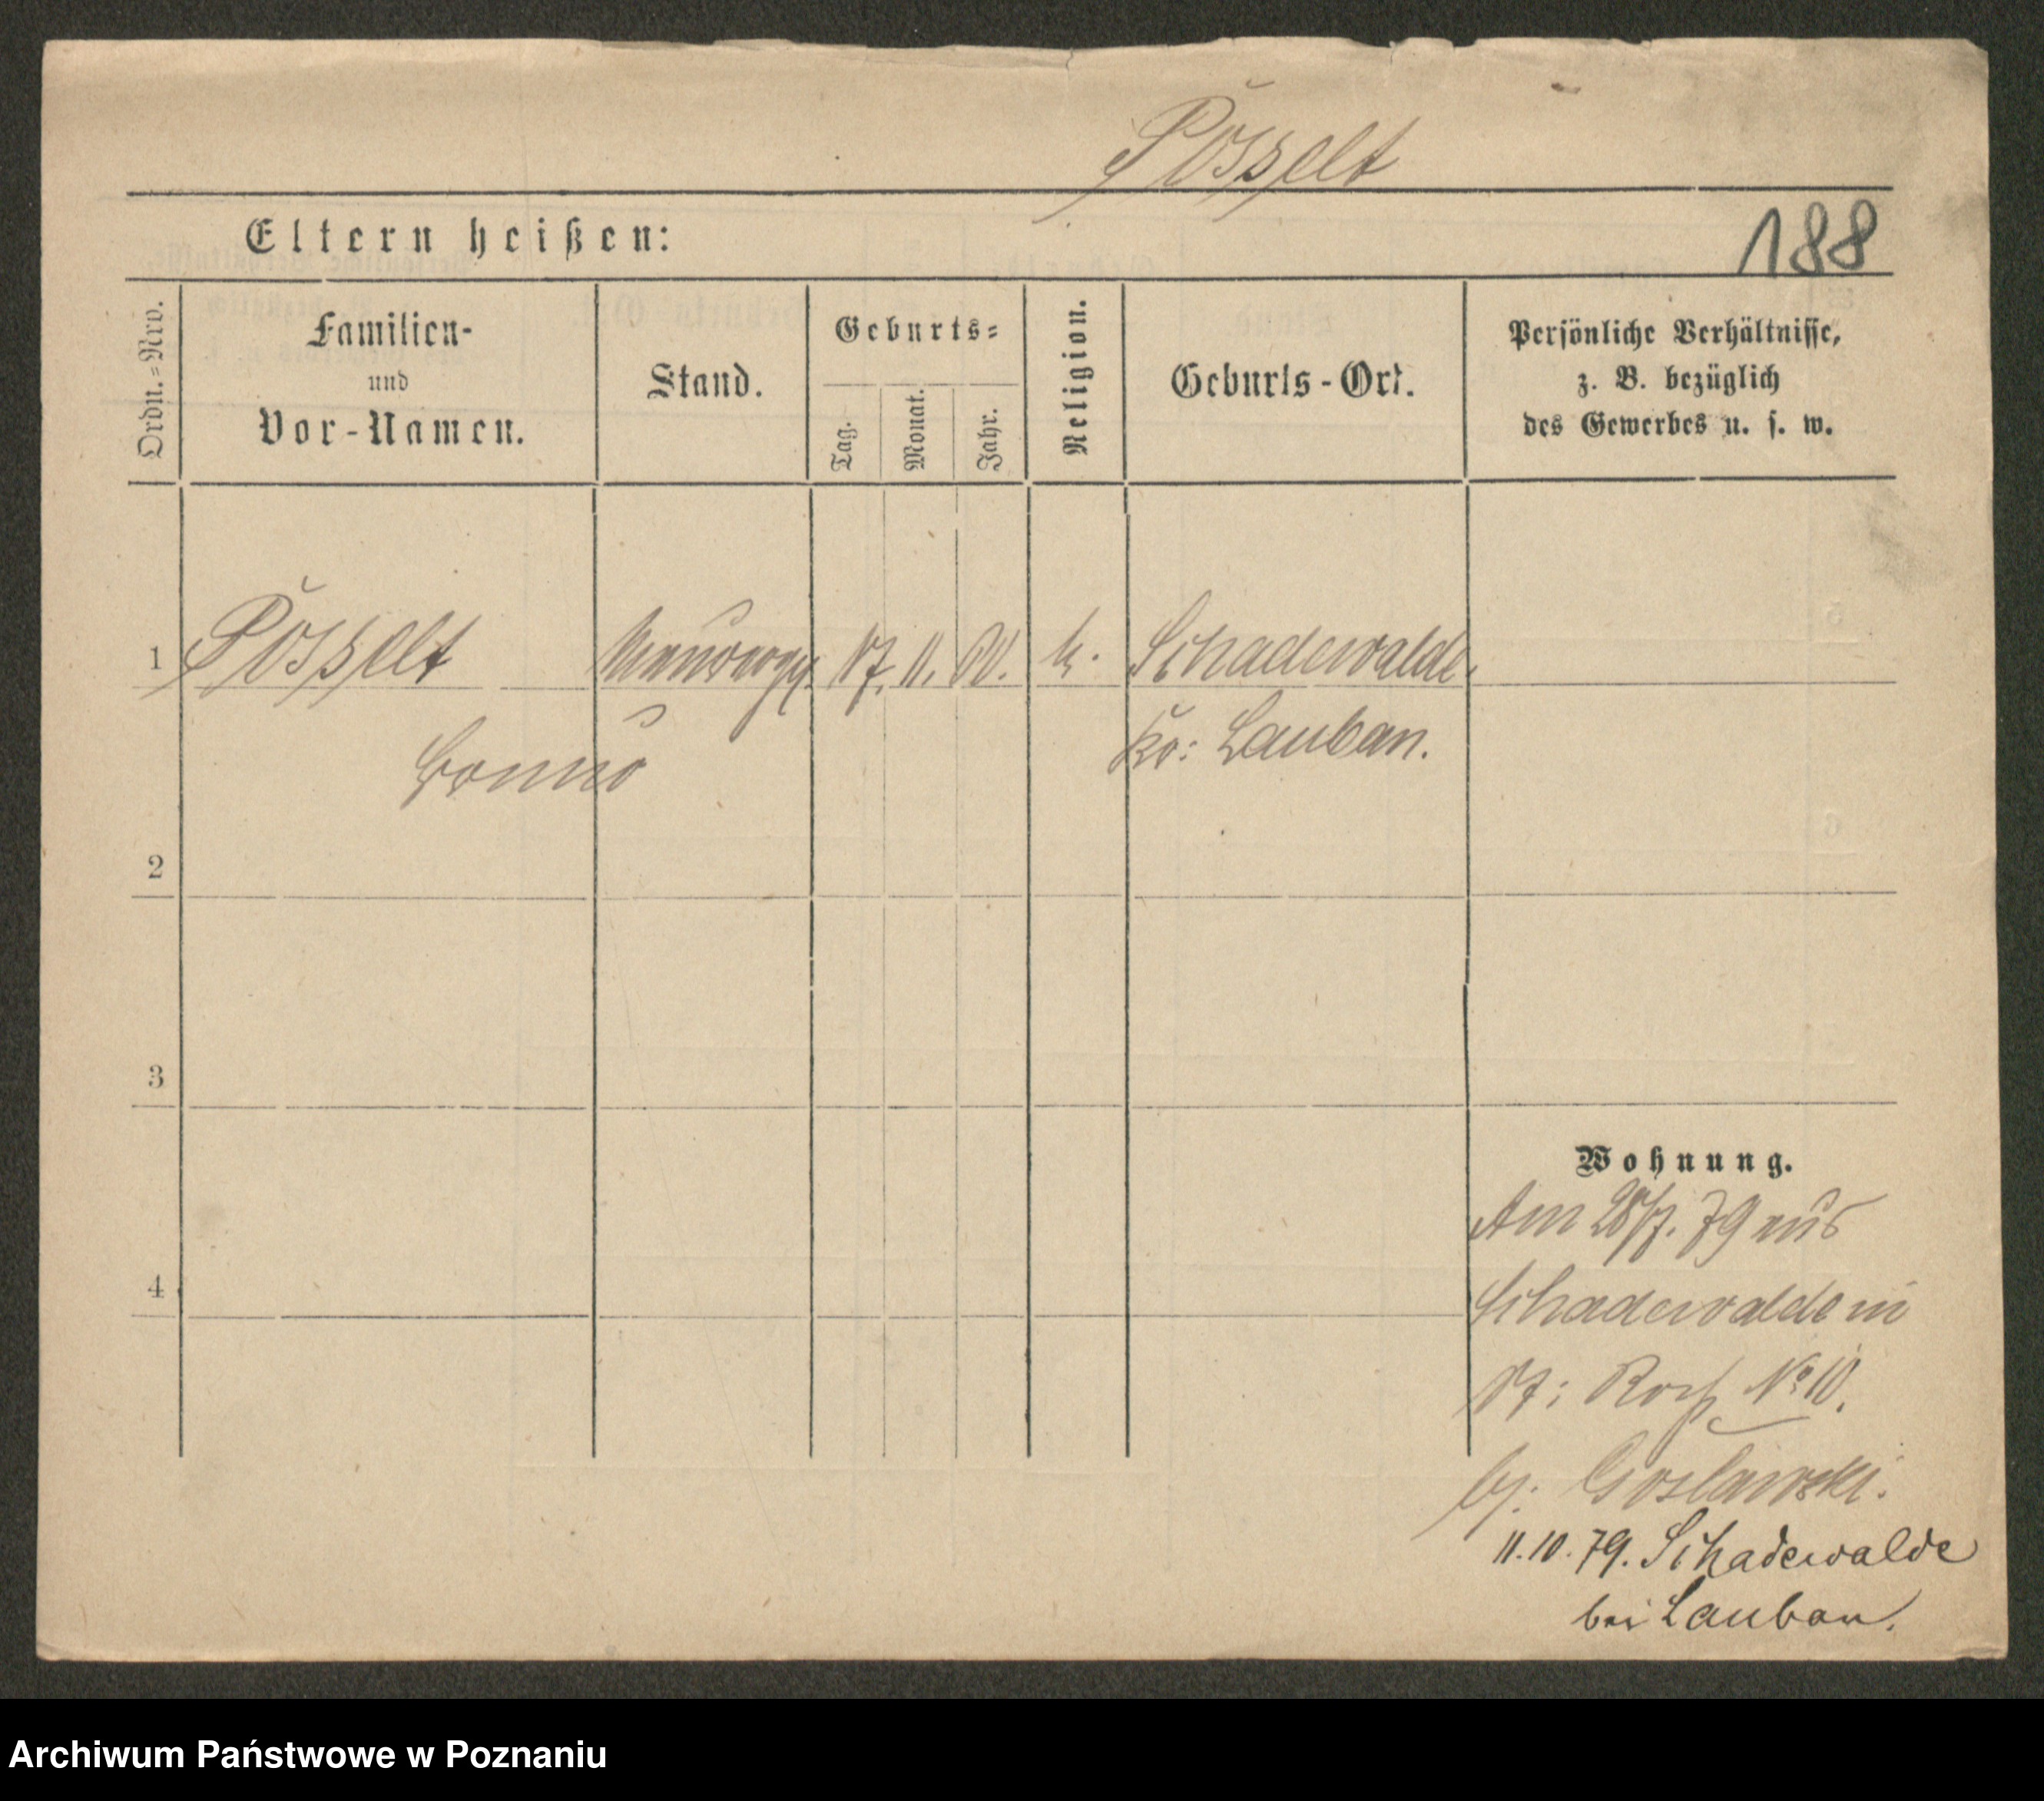 Pösselt
Eltern heißen:
188
Ordn.=Nro.
Familien-
und
Vor-Namen.
Stand.
Geburts=
Tag.
Monat.
Jahr.
Religion.
Geburts-Ort.
Persönliche Verhältnisse,
z. B. bezüglich
des Gewerbes u. s. w.
1 Pösselt 17. 11. 60. k. Schadewalde
Kr: Lauban.
Bruno
2
3
4
Wohnung.
Am 28/7. 79 aus
Schadewalde in
No 10.
bj: Goslawski.
11.10.79. Schadewalde
bei Lauban.
Archiwum Państwowe w Poznaniu